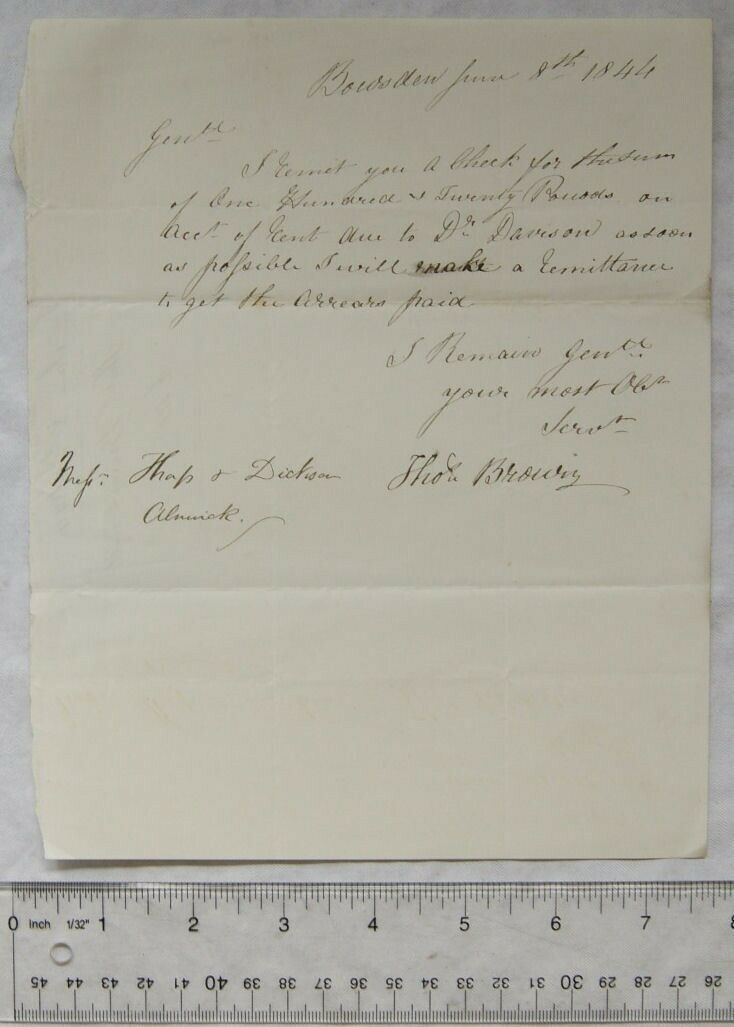 Bowsden June 8th 1844
Gentn
I Remit you A Check for the sum
of One Hundred & Twenty Pounds on
Acct of Rent due to Dr Davison as soon
as possible I will make a Remittance
to get the Arrears paid
I Remain Gentn
your most Obt
Servt
Messrs Thorp & Dickson Thos Brown
Alnwick.
0 Inch 1/32" 1 2 3 4 5 6 7 8
45 44 43 42 41 40 39 38 37 36 35 34 33 32 31 30 29 28 27 26